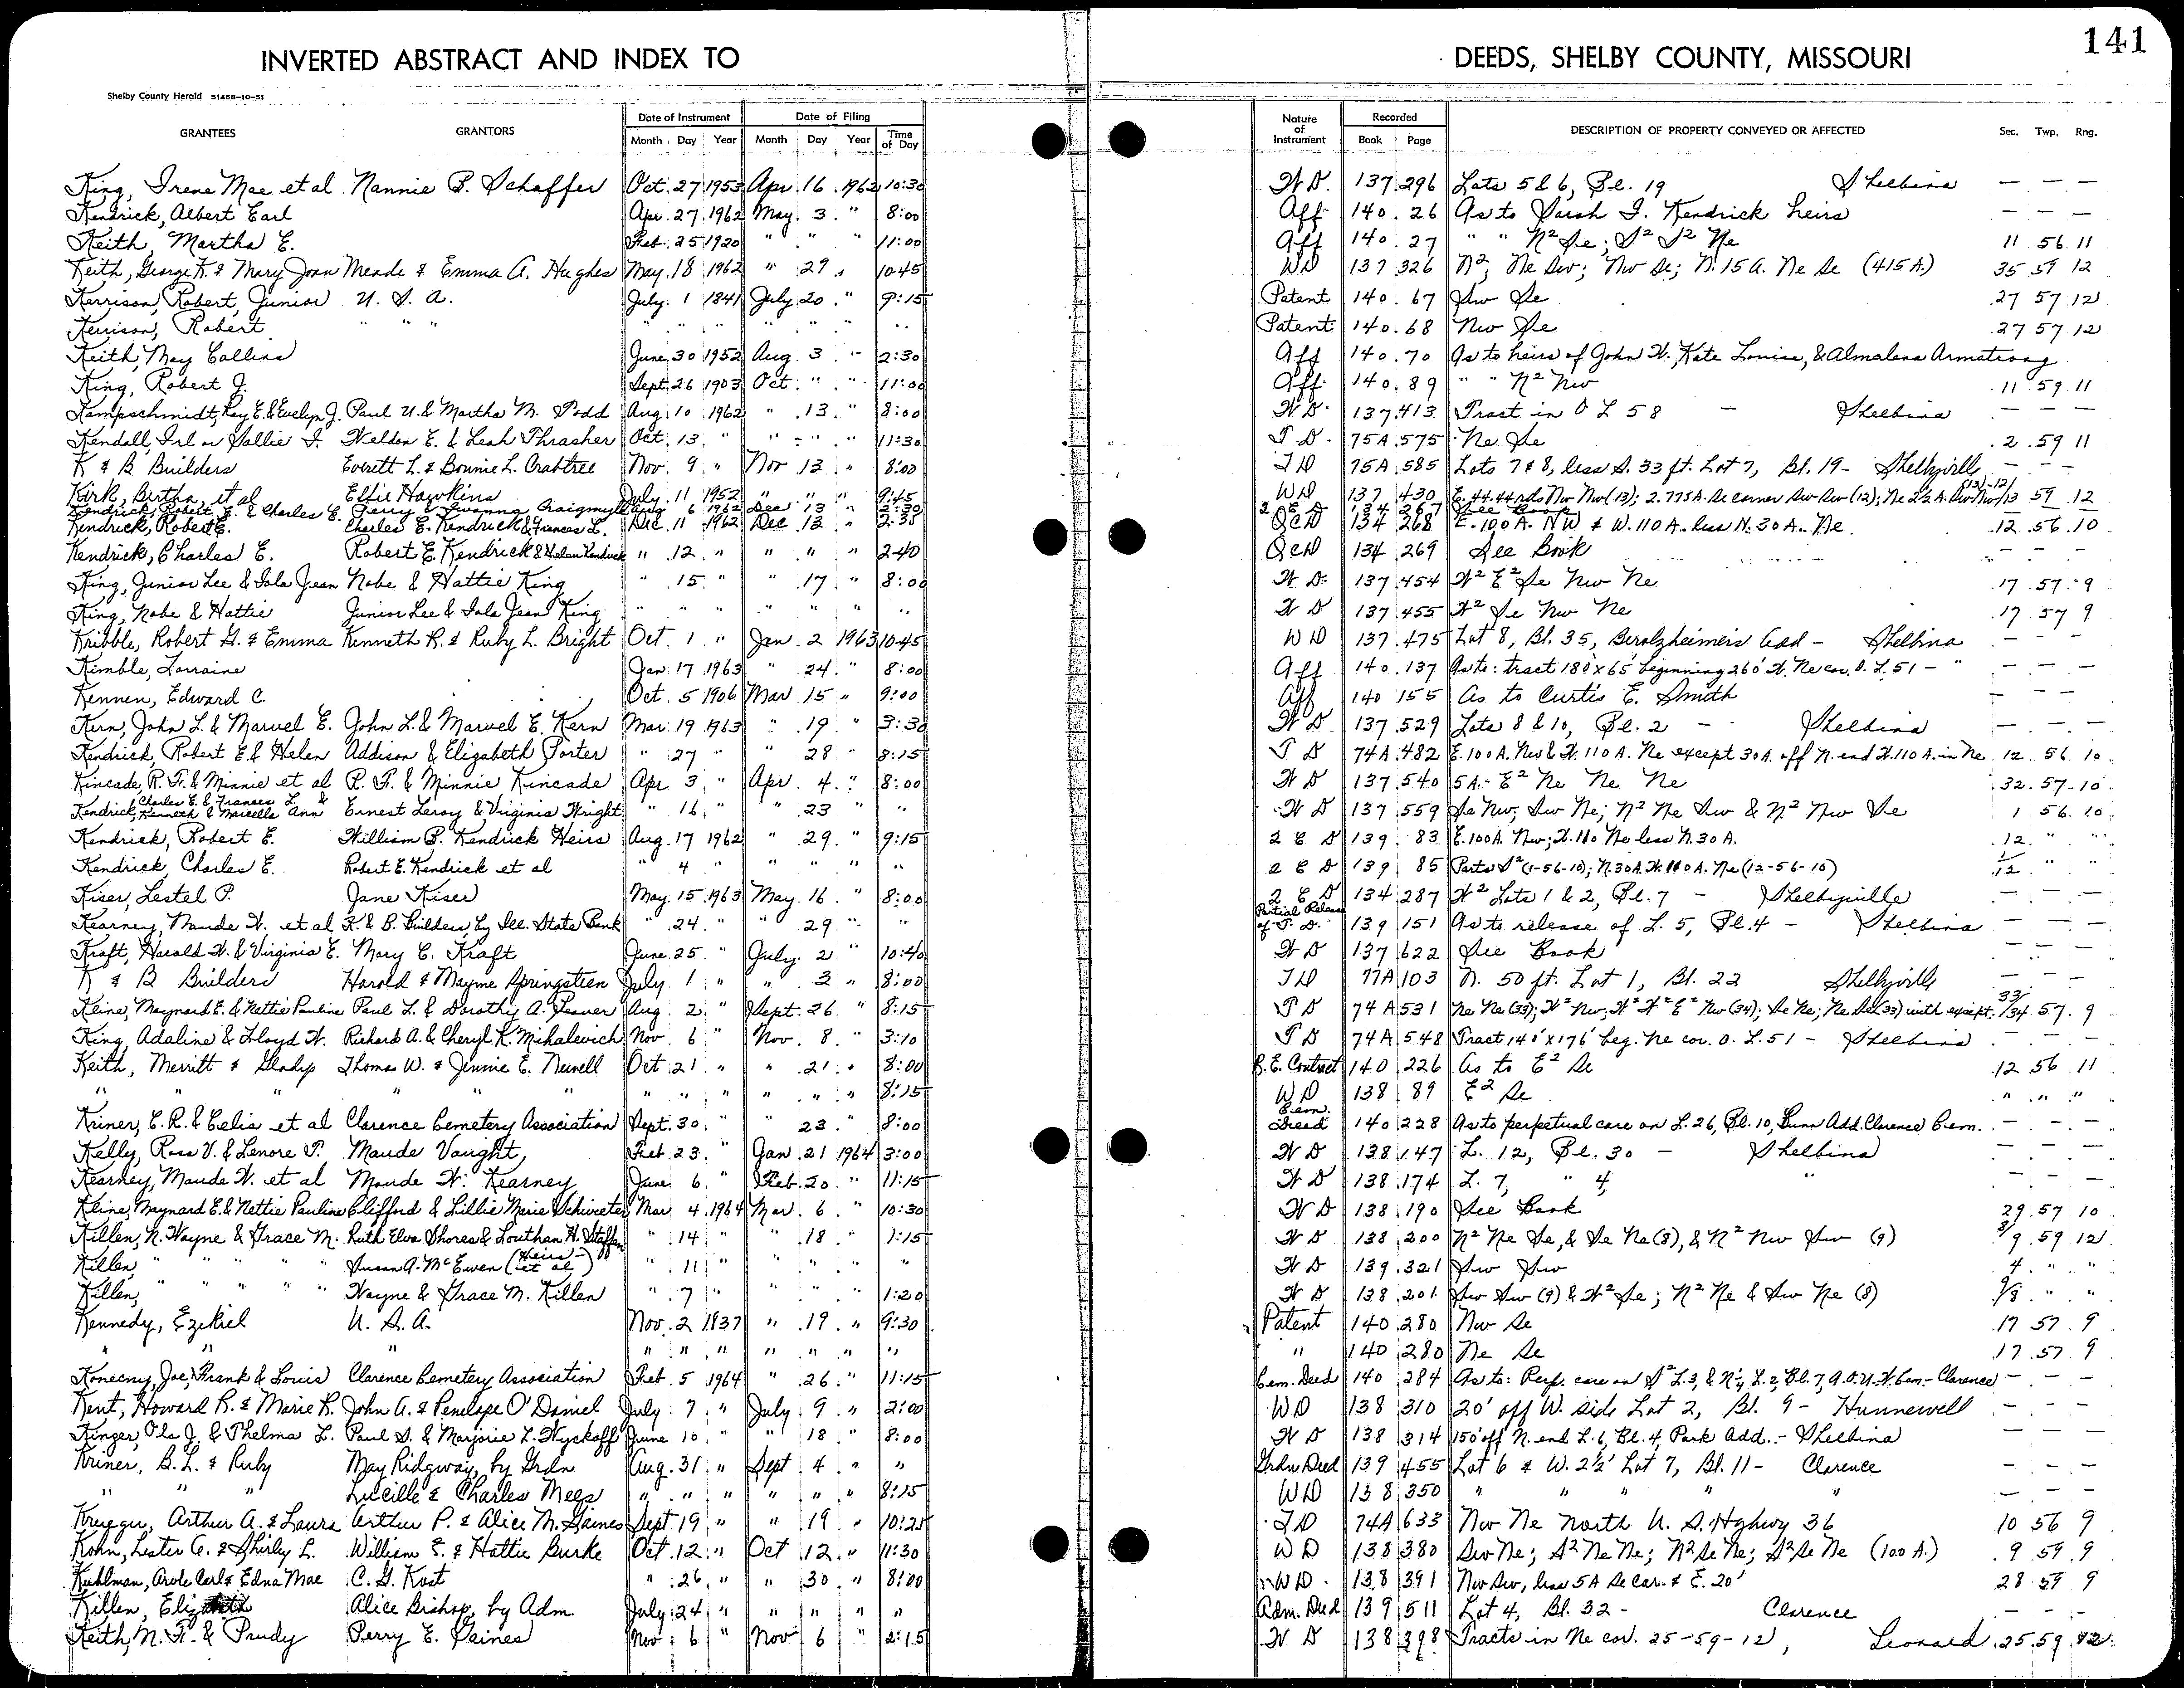 INVERTED ABSTRACT AND INDEX TO DEEDS, SHELBY COUNTY, MISSOURI 141
Shelby County Herald 51458-10-51
GRANTEES GRANTORS Date of Instrument Month Day Year Date of Filing Month Day Year Time of Day Nature of Instrument Recorded Book Page DESCRIPTION OF PROPERTY CONVEYED OR AFFECTED Sec. Twp. Rng.
King, Irene Mae et al Nannie B. Schaffer Oct. 27 1953 Apr. 16 1962 10:30 W D. 137 296 Lots 5 & 6, Bl. 19 Shelbina — — —
Kendrick, Albert Earl Apr. 27 1962 May 3 " 8:00 Aff. 140 26 As to Sarah I. Kendrick heirs — — —
Keith, Martha E. Feb. 25 1920 " " " 11:00 Aff 140 27 " " N² Se; S² S² Ne 11 56 11
Keith, George K. & Mary Joan Meade & Emma A. Hughes May 18 1962 " 29 " 10:45 WD 137 326 N²; Ne Sw; Nw Se; N. 15 A. Ne Se (415 A.) 35 59 12
Kerrison, Robert, Junior U. S. A. July 1 1841 July 20 " 9:15 Patent 140 67 Sw Se 27 57 12
Kerrison, Robert " " " " " " " " " " Patent 140 68 Nw Se 27 57 12
Keith, May Collins June 30 1952 Aug. 3 " 2:30 Aff 140 70 As to heirs of John W., Kate Louisa, & Almalena Armstrong
King, Robert J. Sept. 26 1903 Oct. " " 11:00 Aff. 140 89 " " N² Nw 11 59 11
Kampschmidt, Ray E. & Evelyn J. Paul U. & Martha M. Todd Aug. 10 1962 " 13 " 8:00 W D. 137 413 Tract in O L 58 — Shelbina — — —
Kendall, Irl or Sallie I. Weldon E. & Leah Thrasher Oct. 13 " " " " 11:30 T D. 75A 575 Ne Se 2 59 11
K & B Builders Everett L. & Bonnie L. Crabtree Nov. 9 " Nov 13 " 8:00 T D 75A 585 Lots 7 & 8, less S. 33 ft. Lot 7, Bl. 19 - Shelbyville — — —
Kirk, Bertha, et al Effie Hawkins July 11 1952 " " " 9:45 WD 137 430 E. 44.44 rds Nw Nw (13); 2.775 A. Se corner Sw Sw (12); Ne 2½ A. Sw Nw 13 59 12
Kendrick, Robert E. & Charles E. Craigmyle Aug 6 1962 Dec 13 " 2:30 134 267 See Book
Kendrick, Robert E. Charles E. Kendrick & Frances L. Dec. 11 1962 Dec 13 " 2:35 QCD 134 268 E. 100 A. NW & W. 110 A. less N. 30 A. Ne. 12 56 10
Kendrick, Charles E. Robert E. Kendrick & Helen Kendrick " 12 " " " " 2:40 QCD 134 269 See Book — — —
King, Junior Lee & Iola Jean Nobe & Hattie King " 15 " " 17 " 8:00 W D. 137 454 W² E² Se Nw Ne 17 57 9
King, Nobe & Hattie Junior Lee & Iola Jean King " " " " " " " W D 137 455 W² Se Nw Ne 17 57 9
Kribble, Robert G. & Emma Kenneth R. & Ruby L. Bright Oct. 1 " Jan. 2 1963 10:45 WD 137 475 Lot 8, Bl. 35, Berolzheimers Add - Shelbina — — —
Kimble, Lorraine Jan 17 1963 " 24 " 8:00 Aff 140 137 As to: tract 180' x 65' beginning 260' W. Ne cor. O. L. 51 - " — — —
Kennen, Edward C. Oct. 5 1906 Mar 15 " 9:00 Aff 140 155 As to Curtis E. Smith — — —
Kern, John L. & Marvel E. John L. & Marvel E. Kern Mar. 19 1963 " 19 " 3:30 W D 137 529 Lots 8 & 10, Bl. 2 - Shelbina — — —
Kendrick, Robert E. & Helen Addison & Elizabeth Porter " 27 " 28 " 8:15 T D 74A 482 E. 100 A. Nw & W. 110 A. Ne except 30 A. off N. end W. 110 A. in Ne 12 56 10
Kincade, R. F. & Minnie et al R. F. & Minnie Kincade Apr 3 " Apr. 4 " 8:00 W D 137 540 5 A. - E² Ne Ne Ne 32 57 10
Kendrick, Charles E. & Frances L. & Kenneth & Marcella Ann Ernest Leroy & Virginia Wright " 16 " 23 " W D 137 559 Se Nw; Sw Ne; N² Ne Sw & N² Nw Se 1 56 10
Kendrick, Robert E. William B. Kendrick Heirs Aug. 17 1962 " 29 " 9:15 Q C D 139 83 E. 100 A. Nw; W. 110 Ne less N. 30 A. 12 " "
Kendrick, Charles E. Robert E. Kendrick et al " 4 " " " " Q C D 139 85 Parts S² (1-56-10); N. 30 A. W. 110 A. Ne (12-56-10) 1/12 " "
Kiser, Lestel P. Jane Kiser May 15 1963 May 16 " 8:00 Q C D 134 287 W² Lots 1 & 2, Bl. 7 - Shelbyville — — —
Kearney, Maude W. et al K. & B. Builders, by Ill. State Bank " 24 " " 29 " " Partial Release of T. D. 139 151 As to release of L. 5, Bl. 4 - Shelbina — — —
Kraft, Harold W. & Virginia E. Mary C. Kraft June 25 " July 2 " 10:40 W D 137 622 See Book — — —
K & B Builders Harold & Mayme Springsteen July 1 " " 3 " 8:00 T D 77A 103 N. 50 ft. Lot 1, Bl. 22 Shelbyville — — —
Kline, Maynard E. & Nettie Pauline Paul L. & Dorothy A. Feaver Aug. 2 " Sept. 26 " 8:15 T D 74A 531 Ne Ne (33); W² Nw; W² W² E² Nw (34); Se Ne; Ne Se (33) with except. 33/34 57 9
King, Adaline & Lloyd W. Richard A. & Cheryl K. Mihalevich Nov. 6 " Nov. 8 " 3:10 T D 74A 548 Tract 140' x 176' beg. Ne cor. O. L. 51 - Shelbina — — —
Keith, Merritt & Gladys Thomas W. & Jennie E. Newell Oct 21 " " 21 " 8:00 R. E. Contract 140 226 As to E² Se 12 56 11
" " " " " " " " " " " 8:15 WD 138 89 E² Se " " "
Kriner, C. R. & Celia et al Clarence Cemetery Association Sept. 30 " " 23 " 8:00 Cem. Deed 140 228 As to perpetual care on L. 26, Bl. 10, Bunn Add. Clarence Cem. — — —
Kelly, Ross V. & Lenore T. Maude Vaught Feb. 23 " Jan 21 1964 3:00 W D 138 147 L. 12, Bl. 30 - Shelbina — — —
Kearney, Maude W. et al Maude W. Kearney June 6 " Feb 20 " 11:15 W D 138 174 L. 7, " 4, " — — —
Kline, Maynard E. & Nettie Pauline Clifford & Lillie Marie Schwieter Mar 4 1964 Mar 6 " 10:30 W D 138 190 See Book 29 57 10
Killen, N. Wayne & Grace M. Ruth Elva Shores & Louthan H. Steffen " 14 " " 18 " 1:15 W D 138 200 N² Ne Se, & Se Ne (8), & N² Nw Sw (9) 8/9 59 12
Killen, " " " " " Susan A. McEwen (Heirs et al) " 11 " " " " " W D 139 321 Sw Sw 4 " "
Killen, " " " " " Wayne & Grace M. Killen " 7 " " " " 1:20 W D 138 201 Sw Sw (9) & W² Se; N² Ne & Sw Ne (8) 9/8 " "
Kennedy, Ezekiel U. S. A. Nov. 2 1837 " 19 " 9:30 Patent 140 280 Nw Se 17 57 9
" " " " " " " " " " " 140 280 Ne Se 17 57 9
Konecny, Joe, Frank & Louis Clarence Cemetery Association Feb. 5 1964 " 26 " 11:15 Cem. Deed 140 284 As to: Perp. care on S² L. 3, & N¼ L. 2, Bl. 7, A.O.U.W. Cem. - Clarence — — —
Kent, Howard R. & Marie R. John A. & Penelope O'Daniel July 7 " July 9 " 2:00 WD 138 310 20' off W. side Lot 2, Bl. 9 - Hunnewell — — —
Kinzer, Ola J. & Thelma L. Paul S. & Marjorie L. Wyckoff June 10 " " 18 " 8:00 W D 138 314 150' off N. end L. 6, Bl. 4, Park Add. - Shelbina — — —
Kriner, B. L. & Ruby May Ridgway, by Grdn Aug. 31 " Sept 4 " " Grdn Deed 139 455 Lot 6 & W. 2½' Lot 7, Bl. 11 - Clarence — — —
" " " Lucille & Charles Mees " " " " " " 8:15 WD 138 350 " " " " " — — —
Krueger, Arthur A. & Laura Arthur P. & Alice M. Gaines Sept. 19 " " 19 " 10:25 T D 74A 633 Nw Ne North U. S. Hghwy 36 10 56 9
Kohn, Lester A. & Shirly L. William E. & Hattie Burke Oct 12 " Oct 12 " 11:30 WD 138 380 Sw Ne; S² Ne Ne; N² Se Ne; S² Se Ne (100 A.) 9 59 9
Kuhlman, Arole Carl & Edna Mae C. G. Kost " 26 " " 30 " 8:00 WD 138 391 Nw Sw, less 5A Se Cor. & E. 20' 28 59 9
Killen, Alice Bishop, by Adm. July 24 " " " " " Adm. Deed 139 511 Lot 4, Bl. 32 - Clarence — — —
Keith, N. F. & Prudy Perry E. Gaines Nov 6 " Nov 6 " 2:15 W D 138 398 Tracts in Ne cor. 25-59-12, Leonard 25 59 12